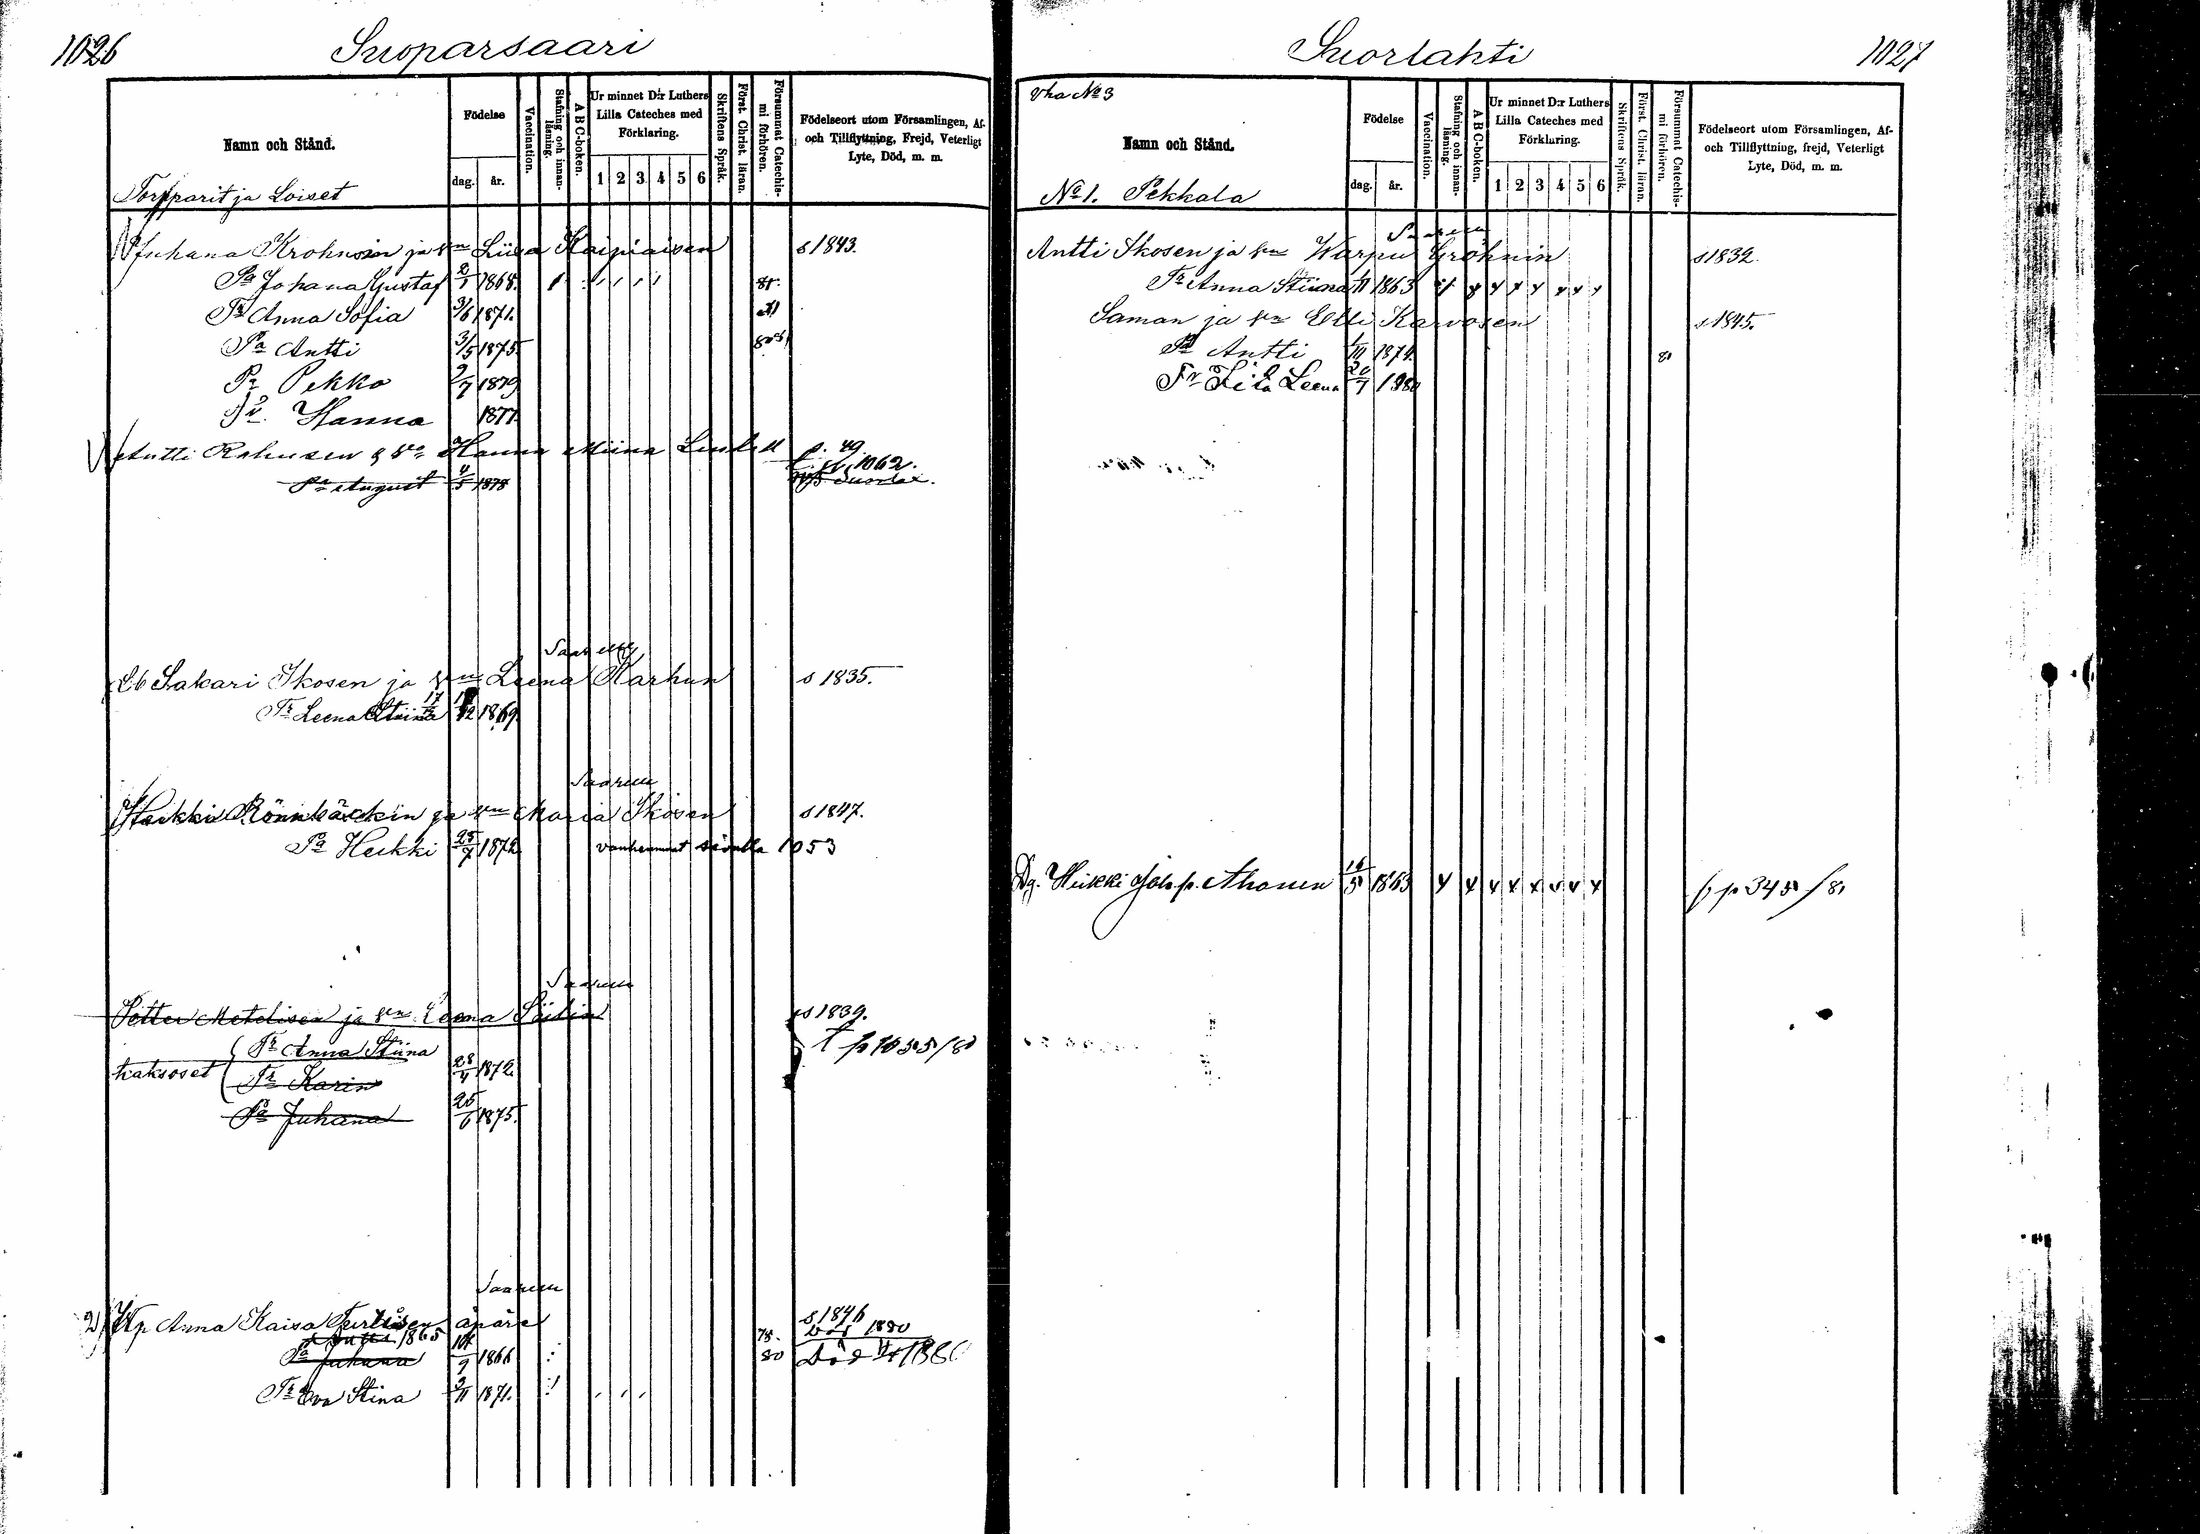 1026 Suoparsaari
Namn och Stånd.
Födelse
dag. år.
Vaccination.
Stafning och innan-läsning.
A B C-boken.
Ur minnet D:r Luthers Lilla Cateches med Förklaring.
1 2 3 4 5 6
Skriftens Språk.
Först. Christ. läran.
Försummat Catechismi förhören.
Födelseort utom Församlingen, Af- och Tillflyttning, Frejd, Veterligt Lyte, Död, m. m.
Torpparit ja Loiset
Juhana Krohnsin ja vm Liisa Kaipiaisen s 1843.
Pa Johana Gustaf 2/1 1868. 81.
Tr Anna Sofia 3/6 1871.
Pa Antti 3/5 1875.
Pa Pekko 9/7 1879
Tr Hanna 1877.
Antti Rahusen & vm Hanna Miina p. 49.
1062.
Pa August 4/5 1878
Saarelle
Lb Sakari Ikosen ja vm Leena Karhun s 1835.
Tr Leena Stiina 17/12 1869
Saaren
Heikki Rönnbäckin ja vm Maria Ikosen s 1847.
Pa Heikki 25/7 1872 vanhemmat sivulla 1053
Saaren
Petter Metelisen ja vm Leena s 1839.
kaksoset
Tr Anna Stiina
Tr Karin 28/4 1872. p 1055/80
Pa Juhana 25/6 1875.
Saaren
2) Anna Kaisa Turtisen äpärä s 1846
1865 78. 1880
Pa Juhana 1866 80 Död 1880
Tr Eva Stina 3/11 1871.
Suorlahti 1027
Vha No 3
Namn och Stånd.
Födelse
dag. år.
Vaccination.
Stafning och innan-läsning.
A B C-boken.
Ur minnet D:r Luthers Lilla Cateches med Förklaring.
1 2 3 4 5 6
Skriftens Språk.
Först. Christ. läran.
Försummat Catechismi förhören.
Födelseort utom Församlingen, Af- och Tillflyttning, frejd, Veterligt Lyte, Död, m. m.
No 1. Pekkala
Saaren
Antti Ikosen ja vm Warpu Gröhnin s 1832.
Tr Anna Stiina 1863
Saman ja vm Elli Karvosen s 1845.
Pa Antti 1874. 80
Tr Leena 20/7 1880
Dg. Heikki Joh. p. Ahonen 16/5 1863 p 345/81